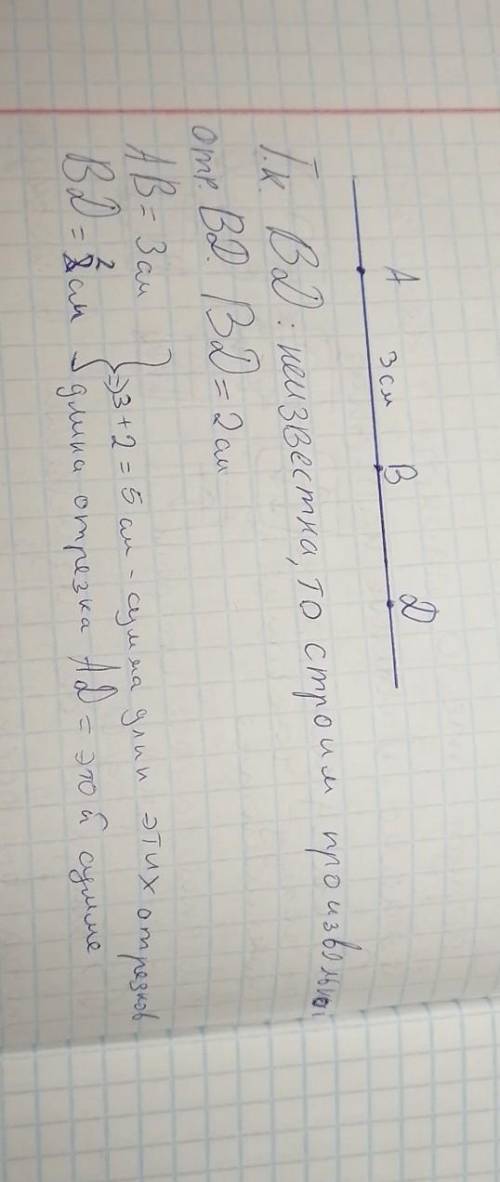 A 3 см B D
Т.к. BD: неизвестна, то строим произвольный
отр. BD. BD = 2 см
AB = 3 см } => 3 + 2 = 5 см - сумма длин этих отрезков
BD = 2 см длина отрезка AD = этой сумме